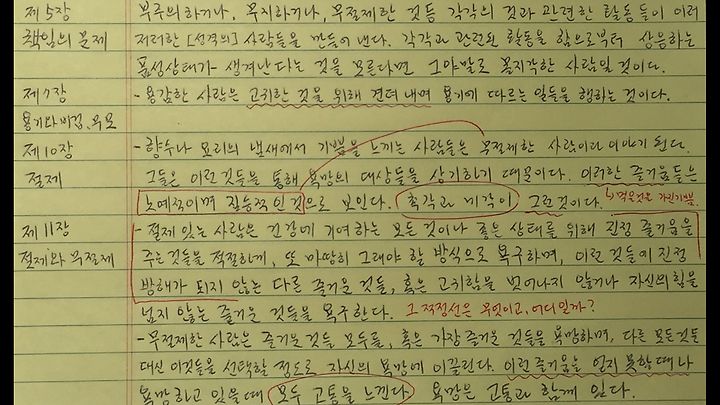 제 5장 부주의하거나, 무지하거나, 무절제한 것등 각각의 것과 관련한 활동들이 이러
책임의 문제 저러한 [성격의] 사람들을 만들어 낸다. 각각과 관련된 활동을 함으로부터 상응하는
품성상태가 생겨난다는 것을 모른다면 그야말로 몰지각한 사람일 것이다.
제 7장 - 용감한 사람은 고귀한 것을 위해 견뎌 내며 용기에 따르는 일들을 행하는 것이다.
용기와 비겁, 무모
제 10장 - 향수나 요리의 냄새에서 기쁨을 느끼는 사람들은 무절제한 사람이라 이야기 된다.
절제 그들은 이런것들을 통해 욕망의 대상들을 상기하기 때문이다. 이러한 즐거움들은
노예적이며 짐승적인 것으로 보인다. 촉각과 미각이 그런것이다. ↳먹을것은 가진기쁨.
제 11장 - 절제 있는 사람은 건강에 기여하는 모든 것이나 좋은 상태를 위해 진정 즐거움을
절제와 무절제 주는것들을 적절하게, 또 마땅히 그래야 할 방식으로 욕구하며, 이런 것들에 진정
방해가 되지 않는 다른 즐거운 것들, 혹은 고귀함을 벗어나지 않거나 자신의 힘을
넘지 않는 즐거운 것들을 욕구한다. 그 적정선은 무엇이고, 어디일까?
- 무절제한 사람은 즐거운것들 모두를, 혹은 가장 즐거운 것들을 욕망하며, 다른 모든것들
대신 이것들을 선택할 정도로 자신의 욕망에 이끌린다. 이런 즐거움을 얻지 못할때나
욕망하고 있을때 모두 고통을 느낀다. 욕망은 고통과 함께 있다.